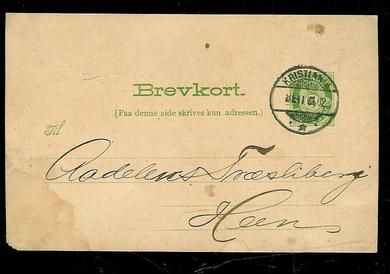 Brevkort.
(Paa denne side skrives kun adressen.)
KRISTIANIA
Til
Aadelens Træsliberi
Heen